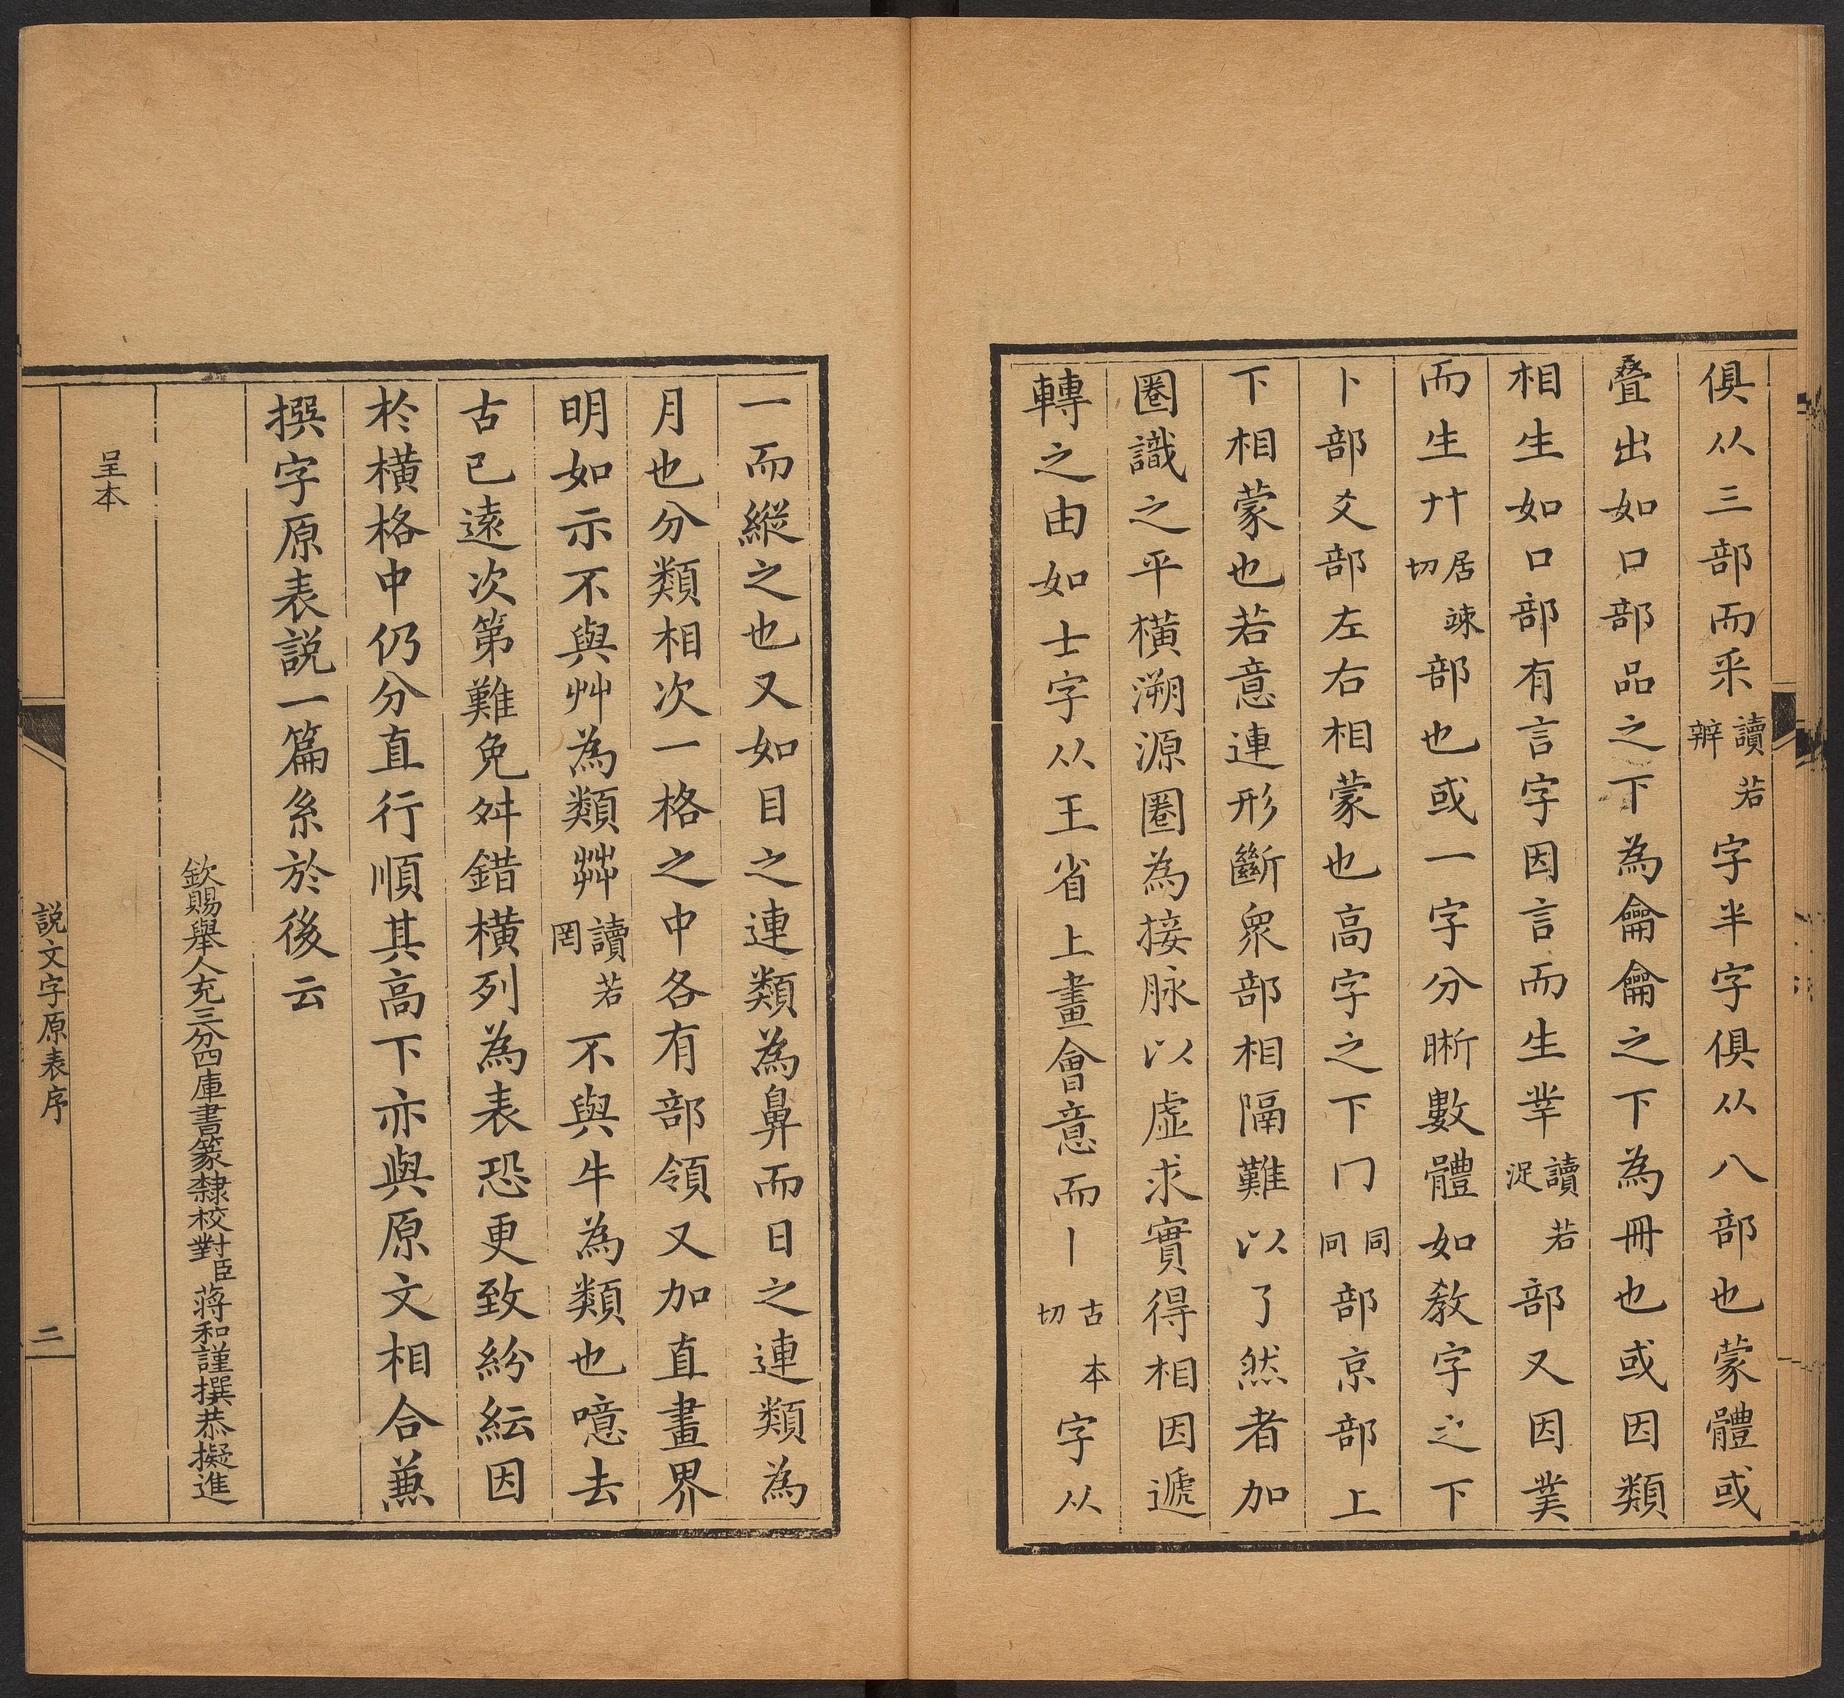 俱从三部而釆讀若辧字半字俱从八部也蒙體或
疊出如口部品之下為龠龠之下為冊也或因類
相生如口部有言字因言而生丵讀若浞部又因菐
而生廾居竦切部也或一字分晰數體如教字之下
卜部爻部左右相蒙也高字之下冂同冋部京部上
下相蒙也若意連形斷衆部相隔難以了然者加
圈識之平橫溯源圈為接脉以虛求實得相因遞
轉之由如士字从王省上畫會意而丨古本切字从
一而縱之也又如目之連類為鼻而日之連類為
月也分類相次一格之中各有部領又加直畫界
明如示不與艸為類茻讀若罔不與牛為類也噫去
古已遠次第難免舛錯橫列為表恐更致紛紜因
於橫格中仍分直行順其高下亦與原文相合蕪
撰字原表説一篇系於後云
欽賜舉人充三分四庫書篆隸校對臣蔣和謹撰恭擬進
呈本
説文字原表序
二